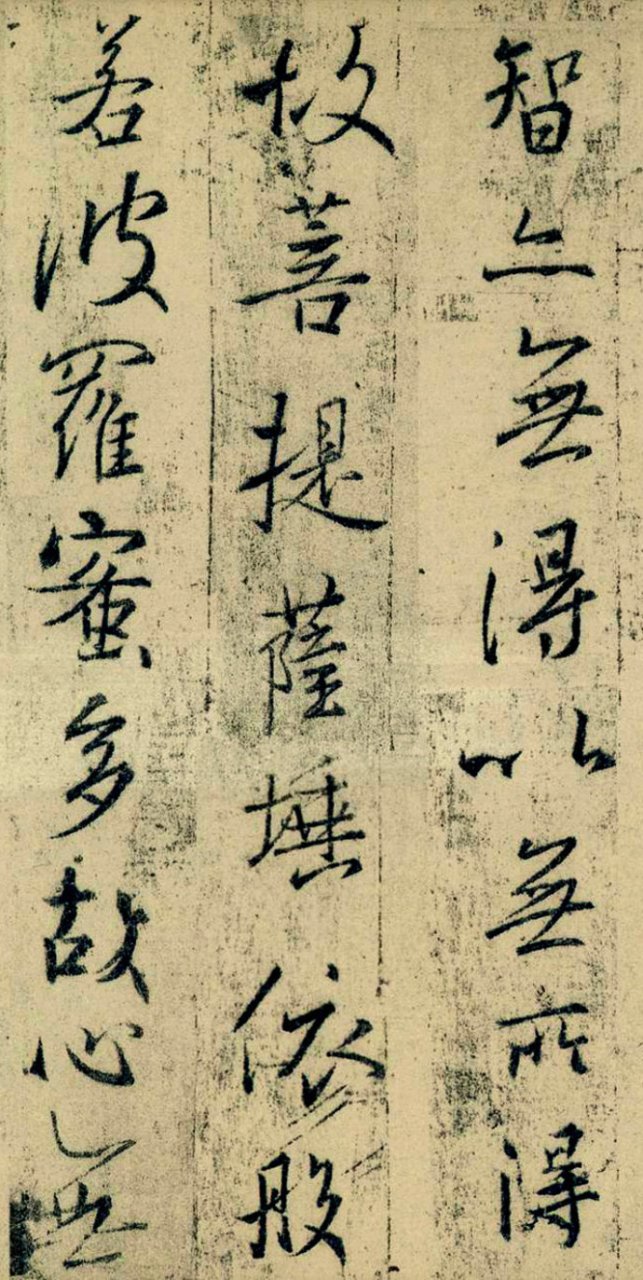 智亦無得以無所得
故菩提薩埵依般
若波羅蜜多故心無